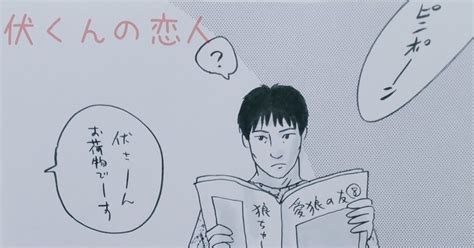 伏くんの恋人
ピンポーン
?
伏さーん
お荷物でーす
愛狼の友
狼ちゃ